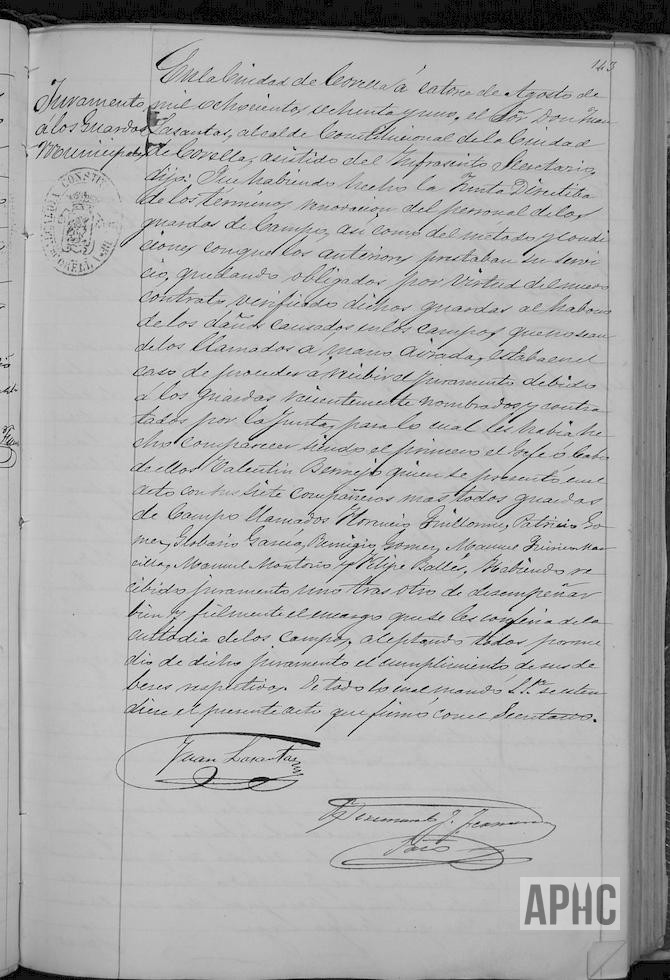 143
Juramento
á los Guardas
Municipales
ALCALDIA CONSTIT
CORELLA
En la Ciudad de Corella á catorce de Agosto de
mil ochocientos ochenta y uno, el Sor Don Juan
Lasantas, alcalde Constitucional de la Ciudad
de Corella, asistido del Infrascrito Secretario,
dijo: Que habiendo hecho la Junta Directiva
de los terminos renovacion del personal de los
guardas de Campo, asi como del metodo y condi
ciones conque los anteriores prestaban su servi
cio, quedando obligados por virtud del nuevo
contrato verificado dichos guardas al habono
de los daños causados en los campos, que no sean
de los llamados a mano airada, estaba en el
caso de proceder a recibir el juramento debido
á los guardas recientemente nombrados y contra
tados por la Junta, para lo cual les habia he
cho comparecer siendo el primero el Gefe ó Cabo
de ellos Valentin Bermejo quien se presentó en el
acto con sus siete compañeros mas todos guardas
de Campo llamados Guillorme, Patricio Go
mez, García, Remigio Gomez, Manuel
Manuel Montorio y Felipe Ballés, Habiendo re
cibido juramento uno tras otro de desempeñar
bien y fielmente el encargo que se les conferia de la
custodia de los campos, aceptando todos por me
dio de dicho juramento el cumplimiento de sus de
beres respectivos. De todo lo cual mandó S.Sª. se esten
diese el presente acto que firmó con el Secretario.
Juan Lasantas
Srio
APHC